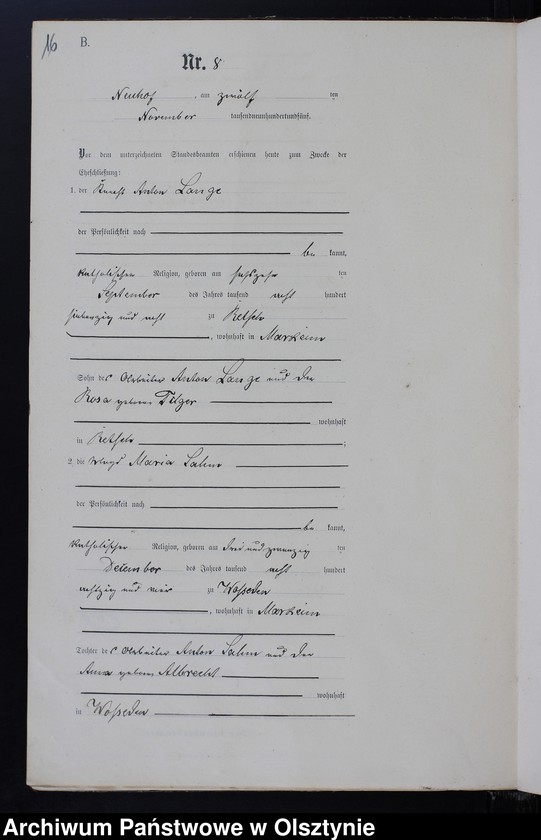 16
B.
Nr. 8
Neuhof, am zwölf ten
November tausendneunhundertundfünf.
Vor dem unterzeichneten Standesbeamten erschienen heute zum Zwecke der
Eheschließung:
1. der Knecht Anton Lange
der Persönlichkeit nach
be kannt,
katholischen Religion, geboren am sechszehn ten
September des Jahres tausend acht hundert
siebenzig und acht zu Retsch
, wohnhaft in Markeim
Sohn des Arbeiter Anton Lange und der
Rosa geborene Tilger
wohnhaft
in Retsch ;
2. die Magd Maria Lahm
der Persönlichkeit nach
be kannt,
katholischer Religion, geboren am drei und zwanzig ten
Dezember des Jahres tausend acht hundert
achtzig und vier zu Wosseden
, wohnhaft in Markeim
Tochter des Arbeiter Anton Lahm und der
Anna geborene Albrecht
wohnhaft
in Wosseden
Archiwum Państwowe w Olsztynie